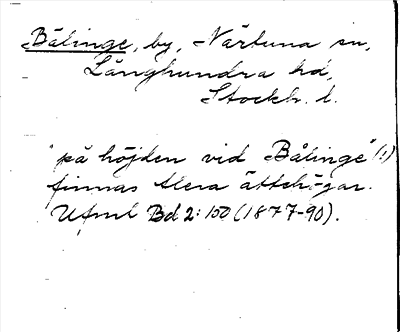 Bälinge, by, Närtuna sn,
Långhundra hd,
Stockh. l.
"på höjden vid Bålinge" (!)
finnas flera ättehögar.
Ufmt Bd 2: 100 (1877-90).